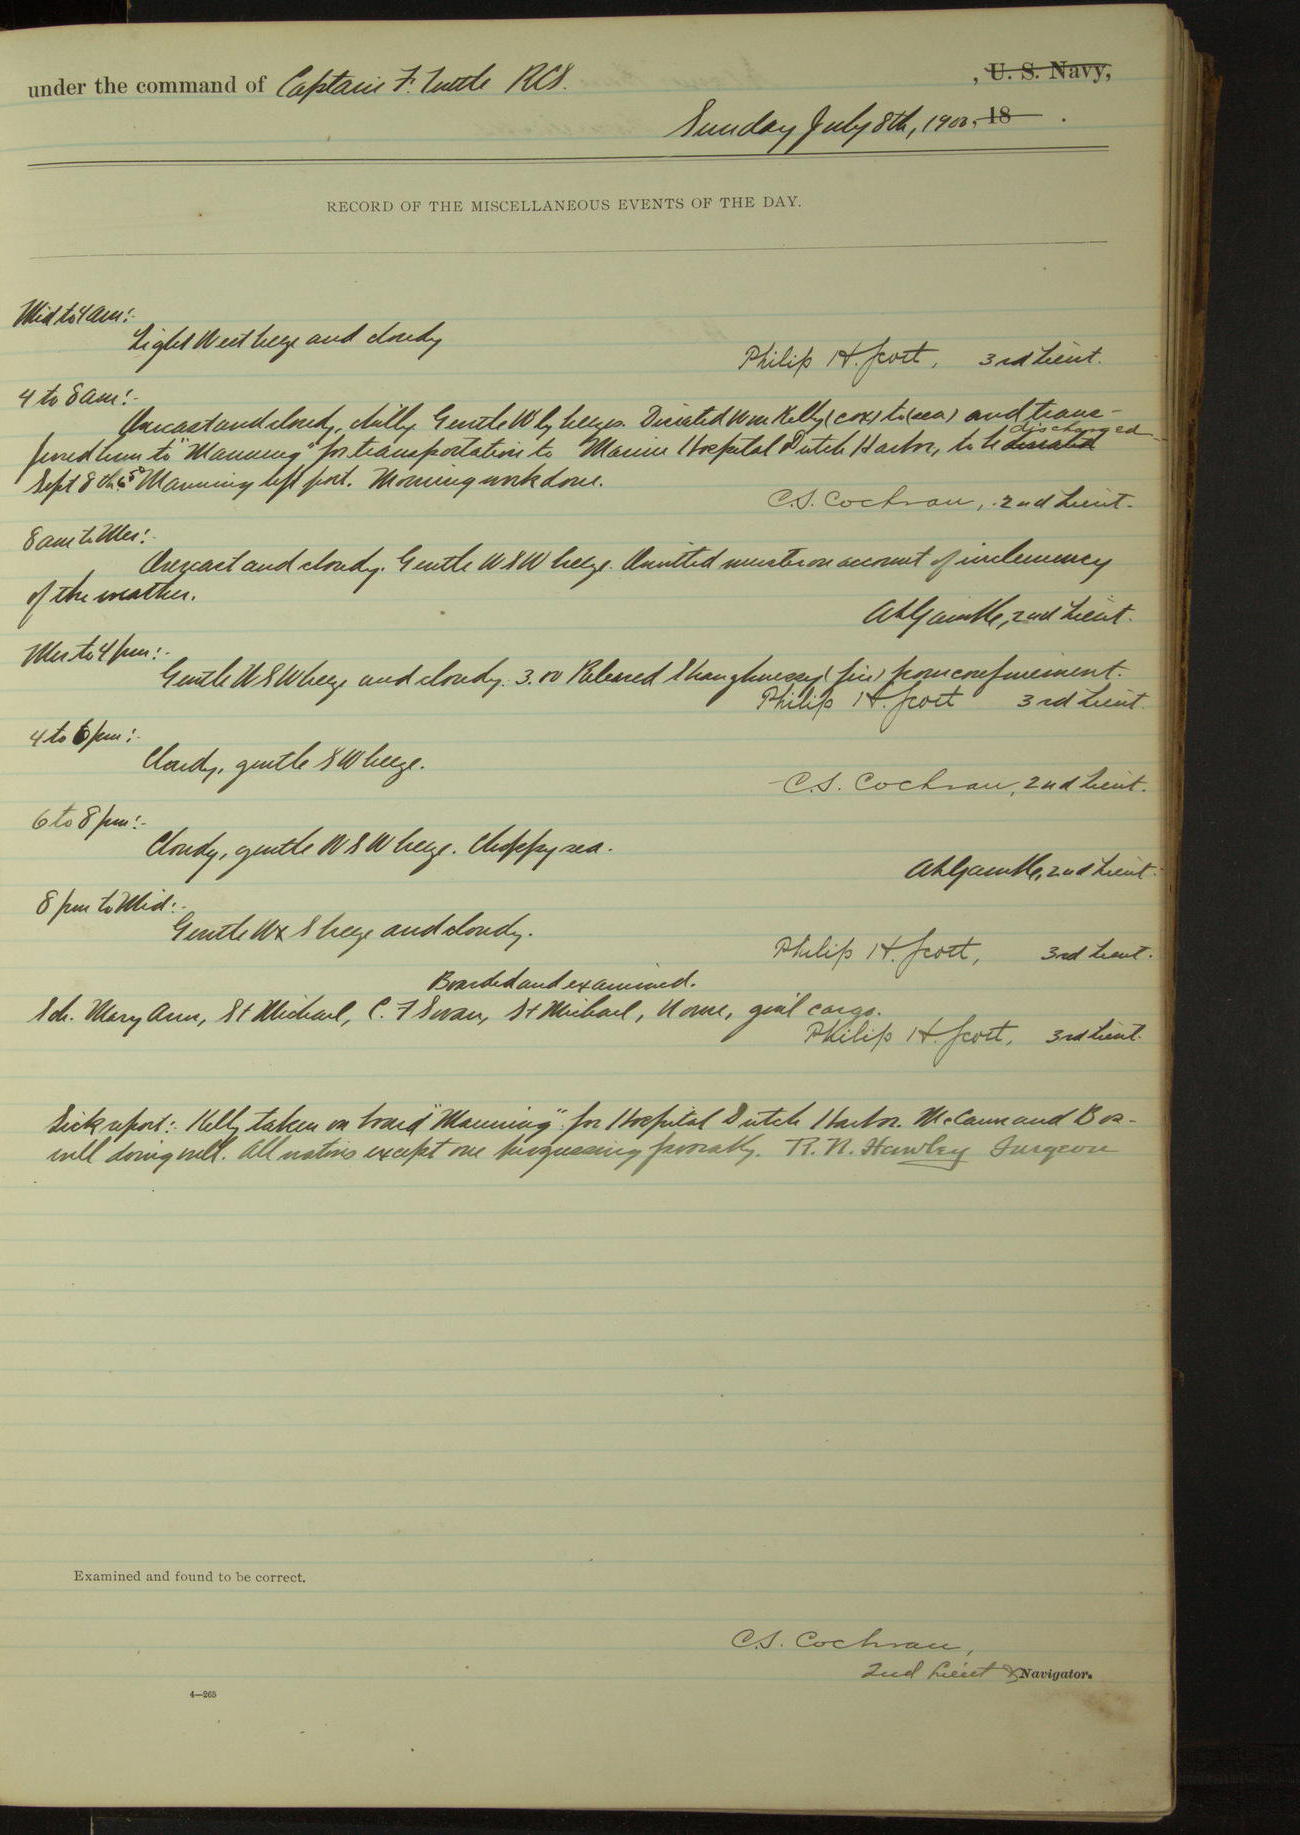 under the command of Captain F. Tuttle RCS. , U. S. Navy,
Sunday July 8th, 1900, 18 .
RECORD OF THE MISCELLANEOUS EVENTS OF THE DAY.
Mid to 4 am:-
Light West breeze and cloudy
Philip H. Scott, 3rd Lieut.
4 to 8 am:-
Overcast and cloudy, chilly. Gentle W'ly breeze. Disrated Wm Kelly (cox) to (sea) and trans-
discharged
ferred him to "Manning" for transportation to Marine Hospital Dutch Harbor, to be disrated
Sept 8th. Manning left port. Morning work done.
C.S. Cochran, 2nd Lieut.
8 am to Mer:-
Overcast and cloudy. Gentle WSW breeze. Omitted muster on account of inclemency
of the weather.
A H Gamble, 2nd Lieut.
Mer to 4 pm:-
Gentle WSW breeze and cloudy. 3.00 Released Shaughnessy (fire) from confinement.
Philip H. Scott 3rd Lieut.
4 to 6 pm:-
Cloudy, gentle SW breeze.
C.S. Cochran, 2nd Lieut.
6 to 8 pm:-
Cloudy, gentle WSW breeze. Choppy sea.
A H Gamble, 2nd Lieut.
8 pm to Mid:-
Gentle W x S breeze and cloudy.
Philip H. Scott, 3rd Lieut.
Boarded and examined.
Sch. Mary Ann, St Michael, C. F Swan, St Michael, Nome, gen'l cargo.
Philip H. Scott, 3rd Lieut.
Sick report:- Kelly taken on board "Manning" for Hospital Dutch Harbor. McCann and Bos-
well doing well. All natives except one progressing favorably. R. N. Hawley Surgeon
Examined and found to be correct.
C.S. Cochran,
2nd Lieut & Navigator.
4—265